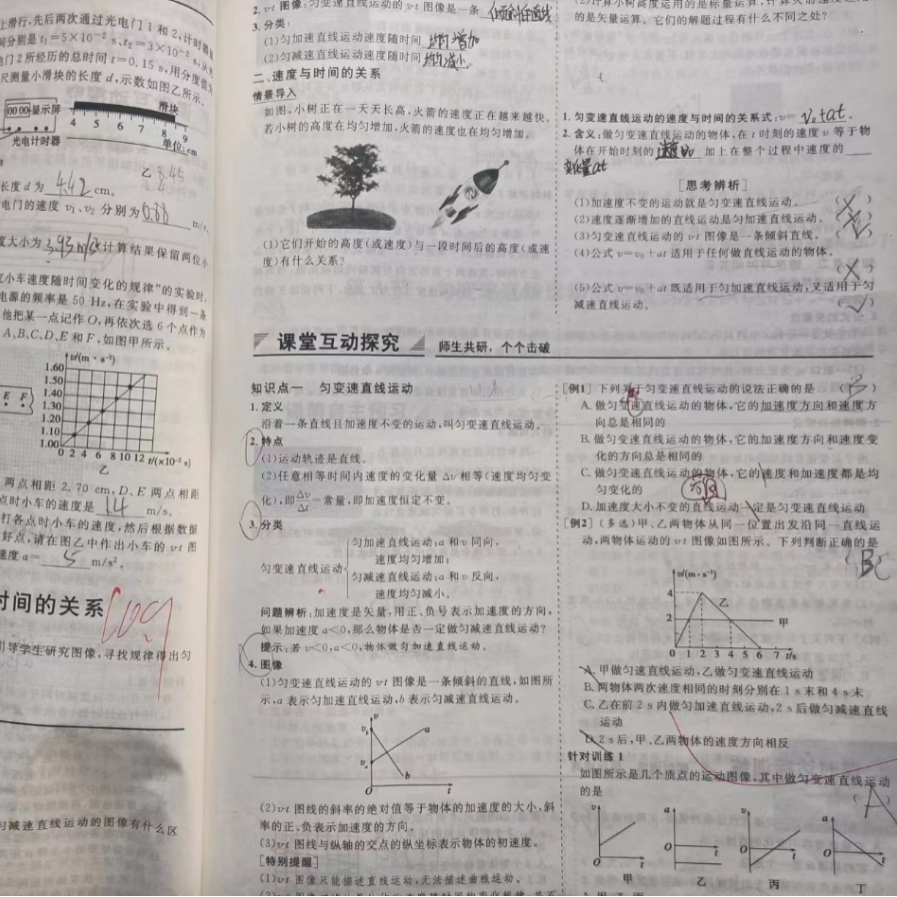 上滑行,先后两次通过光电门1和2,计时器
间分别是t₁=5×10⁻² s,t₂=3×10⁻² s,从
电门2所经历的总时间t=0.15 s,用分度值为
尺测量小滑块的长度d,示数如图乙所示.
00 00 显示屏
滑块
4 5 6 7 8 9
单位:cm
光电计时器
乙
长度d为 4.42 cm.
电门的速度v₁、v₂分别为 m/s
度大小为 计算结果保留两位小
究小车速度随时间变化的规律”的实验时,
电源的频率是50 Hz,在实验中得到一条
他把某一点记作O,再依次选6个点作为
A、B、C、D、E和F,如图甲所示.
v/(m·s⁻¹)
1.60
1.50
1.40
1.30
1.20
1.10
1.00
E F
0 2 4 6 8 10 12 t/(×10⁻² s)
乙
两点相距2.70 cm,D、E两点相距
点时小车的速度是 1.4 m/s.
打各点时小车的速度,然后根据数据
好点,请在图乙中作出小车的v-t图
速度a= 5 m/s².
时间的关系
引导学生研究图像,寻找规律得出匀
匀减速直线运动的图像有什么区
2.v-t图像:匀变速直线运动的v-t图像是一条 倾斜的直线
3.分类:
(1)匀加速直线运动速度随时间 均匀增加
(2)匀减速直线运动速度随时间 均匀减小.
二、速度与时间的关系
情景导入
如图,小树正在一天天长高,火箭的速度正在越来越快,
若小树的高度在均匀增加,火箭的速度也在均匀增加.
(1)它们开始的高度(或速度)与一段时间后的高度(或速
度)有什么关系?
的是矢量运算.它们的解题过程有什么不同之处?
1.匀变速直线运动的速度与时间的关系式:v= v₀+at.
2.含义:做匀变速直线运动的物体,在t时刻的速度v等于物
体在开始时刻的 速度v₀ 加上在整个过程中速度的
变化量at
[思考辨析]
(1)加速度不变的运动就是匀变速直线运动. (×)
(2)速度逐渐增加的直线运动是匀加速直线运动.
(3)匀变速直线运动的v-t图像是一条倾斜直线. (√)
(4)公式v=v₀+at适用于任何做直线运动的物体.
(×)
(5)公式v=v₀+at既适用于匀加速直线运动,又适用于匀
减速直线运动. (√)
课堂互动探究 师生共研,个个击破
知识点一 匀变速直线运动
1.定义
沿着一条直线且加速度不变的运动,叫匀变速直线运动.
2.特点
(1)运动轨迹是直线.
(2)任意相等时间内速度的变化量Δv相等(速度均匀变
化),即Δv/Δt=常量,即加速度恒定不变.
3.分类
匀变速直线运动
匀加速直线运动:a和v同向,
速度均匀增加;
匀减速直线运动:a和v反向,
速度均匀减小.
问题辨析:加速度是矢量,用正、负号表示加速度的方向,
如果加速度a<0,那么物体是否一定做匀减速直线运动?
提示:若v<0,a<0,物体做匀加速直线运动.
4.图像
(1)匀变速直线运动的v-t图像是一条倾斜的直线,如图所
示,a表示匀加速直线运动,b表示匀减速直线运动.
v
a
b
O
t
(2)v-t图线的斜率的绝对值等于物体的加速度的大小,斜
率的正、负表示加速度的方向.
(3)v-t图线与纵轴的交点的纵坐标表示物体的初速度.
[特别提醒]
(1)v-t图像只能描述直线运动,无法描述曲线运动.
[例1] 下列关于匀变速直线运动的说法正确的是 (B)
A.做匀变速直线运动的物体,它的加速度方向和速度方
向总是相同的
B.做匀变速直线运动的物体,它的加速度方向和速度变
化的方向总是相同的
C.做匀变速直线运动的物体,它的速度和加速度都是均
匀变化的
方向
D.加速度大小不变的直线运动一定是匀变速直线运动
[例2] (多选)甲、乙两物体从同一位置出发沿同一直线运
动,两物体运动的v-t图像如图所示.下列判断正确的是
(BC
v/(m·s⁻¹)
4
乙
2
甲
0 1 2 3 4 5 6 7 t/s
A.甲做匀速直线运动,乙做匀变速直线运动
B.两物体两次速度相同的时刻分别在1 s末和4 s末
C.乙在前2 s内做匀加速直线运动,2 s后做匀减速直线
运动
D.2 s后,甲、乙两物体的速度方向相反
针对训练1
如图所示是几个质点的运动图像,其中做匀变速直线运动
的是 (A)
v
O
t
甲
a
O
t
乙
v
O
t
丙
a
O
t
丁